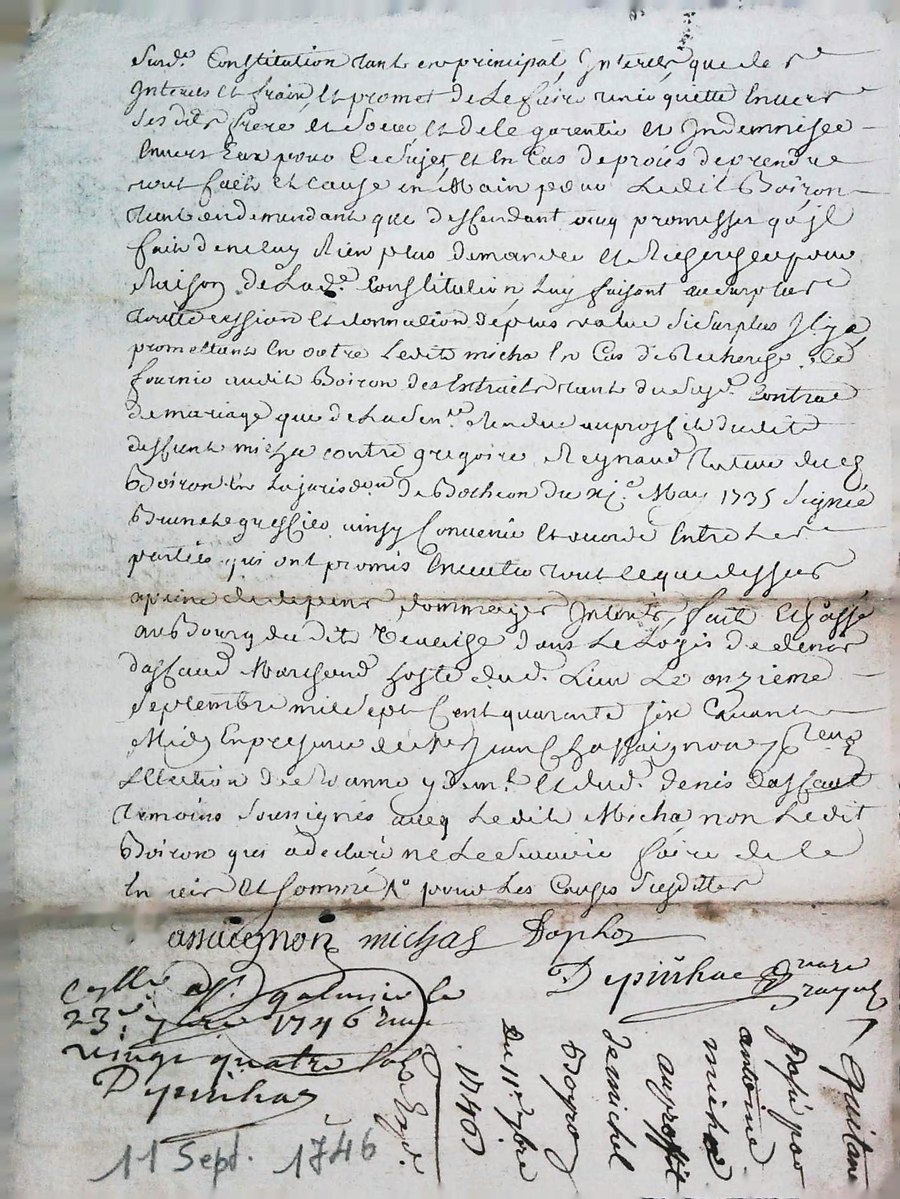 Surd.e Constitution tant en principal Interets que de s.
Interets et frais, et promet de le faire tenir quitte Envers
Sesdits frere et Soeur et de le garentir et Indemniser
Envers Eux pour le Sujet, et En Cas de procés de prendre
tout fait et cause en Main pour Ledit Boiron
tant en demandant que deffendant avec promesses qu'jl
fait de ne luy Rien plus demander et Rechercher pour
Raison de Lad.e Constitution Luy faisant au Surplus
toutte cession et donnation de plus value Si Surplus Il y a
promettant En outre Ledit micha En Cas de Recherche de
fournir audit Boiron des Extraits tant du Contrat
de mariage que de La Sen.ce Rendue au proffit dudit
deffunt micha contre gregoire Reynaud Tuteur
Boiron En La jurisd.on de Botheon du xj.e May 1735 Signée
Brunet greffier, ainsy Convenu et accordé Entre Les
parties qui ont promis Executer tout ce que dessus
a peine de depens dommages Interets, fait Et passé
au Bourg du dit dans Le Logis de denis
dassaud Marchand hoste dud. Lieu Le onzieme
Septembre mil Sept Cent quarante Six avant
Midy En presence de Jean Chassaignon
Ellection de Roanne y dem.t et dud. denis dassaud
temoins Soussignés avec Ledit Micha non Ledit
Boiron qui a declaré ne Le Scavoir faire de ce
Enquis Et Sommé pour Les Causes Susdittes
assaignon michas
Depinhac
Cellé a St. galmier le
23.e 1746
vingt quatre Sols
Depinhac
11 Sept. 1746
Quittance
passé par
antoine
micha
au proffit
de michel
Boyron
Du 11e 7bre
1746